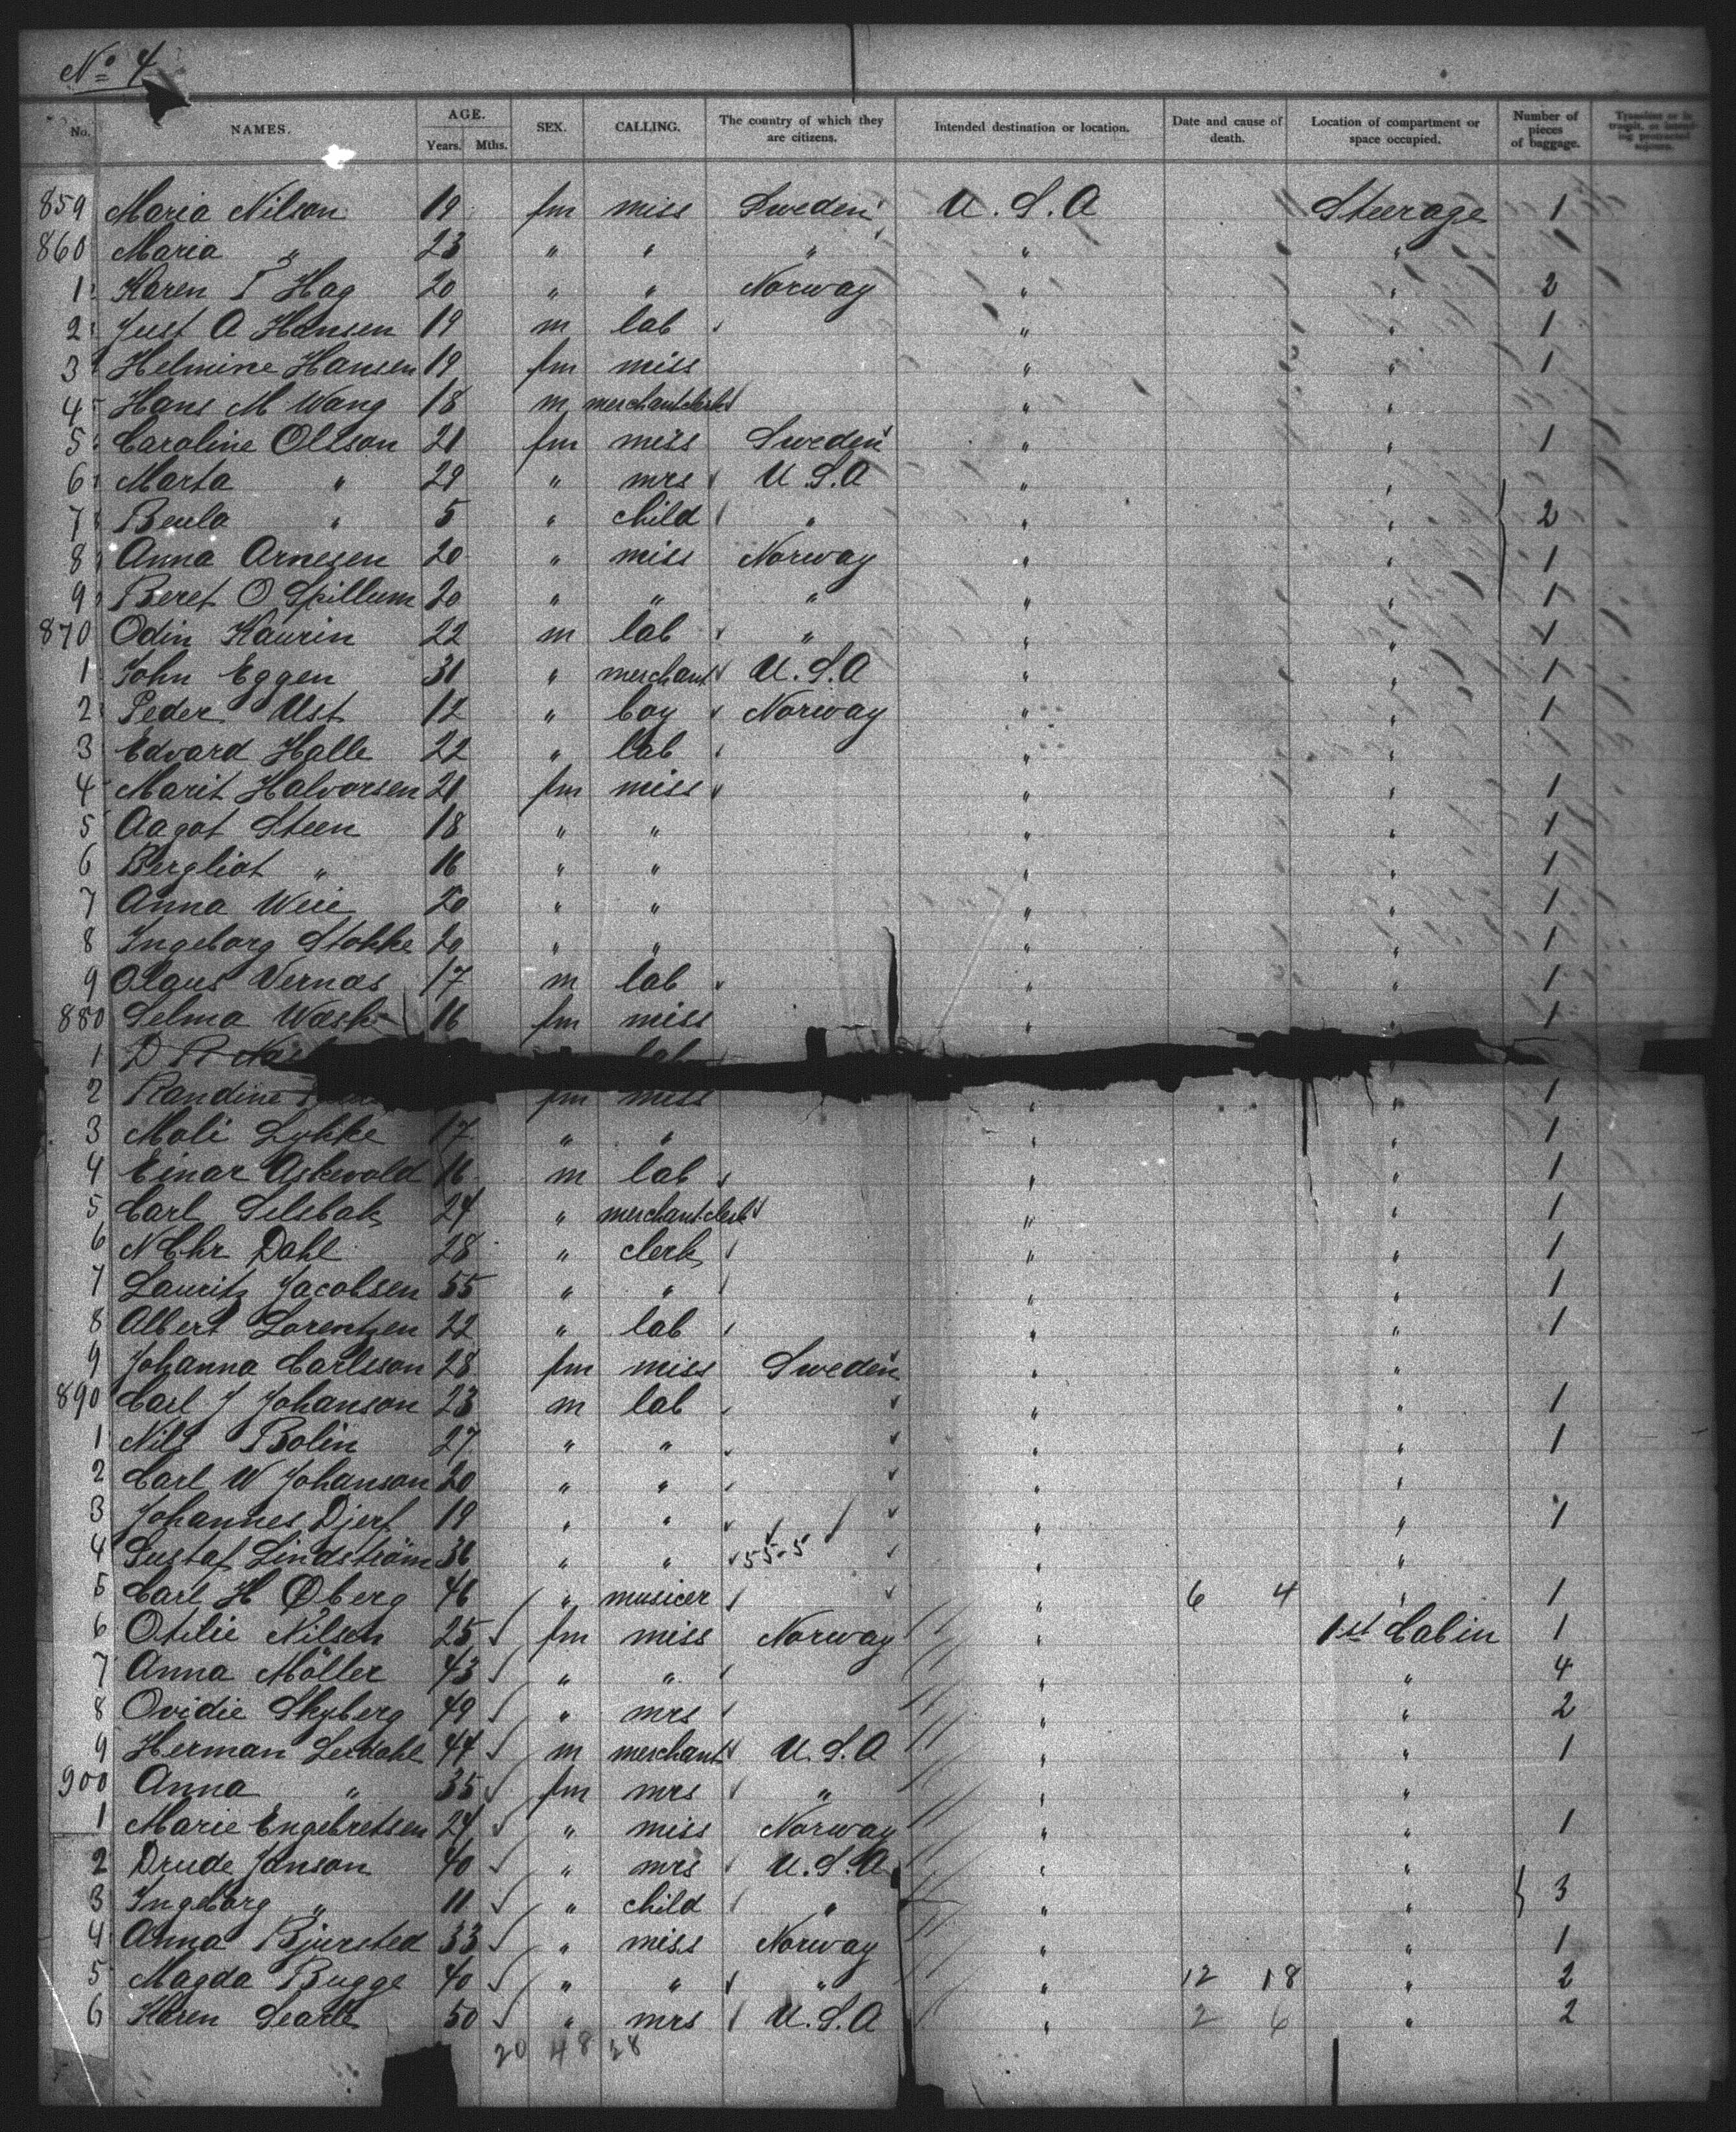 No 4
No. NAMES. AGE. Years. Mths. SEX. CALLING. The country of which they are citizens. Intended destination or location. Date and cause of death. Location of compartment or space occupied. Number of pieces of baggage.
859 Maria Nilson 19 fm miss Sweden U.S.A Steerage 1
860 Maria " 23 " " " " " 1
1 Karen T Hag 20 " " Norway " " 2
2 Just A Hansen 19 m lab " " 1
3 Helmine Hansen 19 fm miss " " 1
4 Hans M Wang 18 m merchant clerk " "
5 Caroline Ollson 21 fm miss Sweden " " 1
6 Marta " 29 " mrs U.S.A " "
7 Beula " 5 " child " " " 2
8 Anna Arnesen 20 " miss Norway " " 1
9 Beret O Spillum 20 " " " " " 1
870 Odin Haurin 22 m lab " " " 1
1 John Eggen 31 " merchant U.S.A " " 1
2 Peder Ust 12 " boy Norway " " 1
3 Edvard Halle 22 " lab " " 1
4 Marit Halvorsen 21 fm miss " " 1
5 Aagot Steen 18 " " " " 1
6 Bergliot " 16 " " " " 1
7 Anna Weie 20 " " " " 1
8 Ingeborg Stokke 20 " " " " 1
9 Olaus Vernæs 17 m lab " " 1
880 Selma 16 fm miss " " 1
1 lab
2 Randine fm miss " " 1
3 Moli Lykke 17 " " " " 1
4 Einar Askevold 16 m lab " " 1
5 Carl Selsbak 24 " merchant clerk " " 1
6 N Chr Dahl 28 " clerk " " 1
7 Lauritz Jacobsen 55 " " " " 1
8 Albert Lorentzen 22 " lab " " 1
9 Johanna Carlsson 28 fm miss Sweden " "
890 Carl J Johanson 23 m lab " " 1
1 Nils Bolin 27 " " " " 1
2 Carl W Johanson 20 " " "
3 Johannes Djerf 19 " " " " 1
4 Gustaf Lindström 36 " " 55-5 " "
5 Carl H Øberg 46 " musicer " 6 4 " 1
6 Otilie Nilsen 25 fm miss Norway " 1st Cabin 1
7 Anna Möller 43 " " " " 4
8 Ovidie Skyberg 49 " mrs " " 2
9 Herman Leedahl 44 m merchant U.S.A " " 1
900 Anna " 35 fm mrs " " "
1 Marie Engebretsen 24 " miss Norway " " 1
2 Drude Janson 40 " mrs U.S.A " "
3 Ingeborg " 11 " child " " " 3
4 Anna Bjursted 33 " miss Norway " " 1
5 Magda Bugge 40 " " " " 12 18 " 2
6 Karen Searle 50 " mrs U.S.A " 2 6 " 2
20 48 28